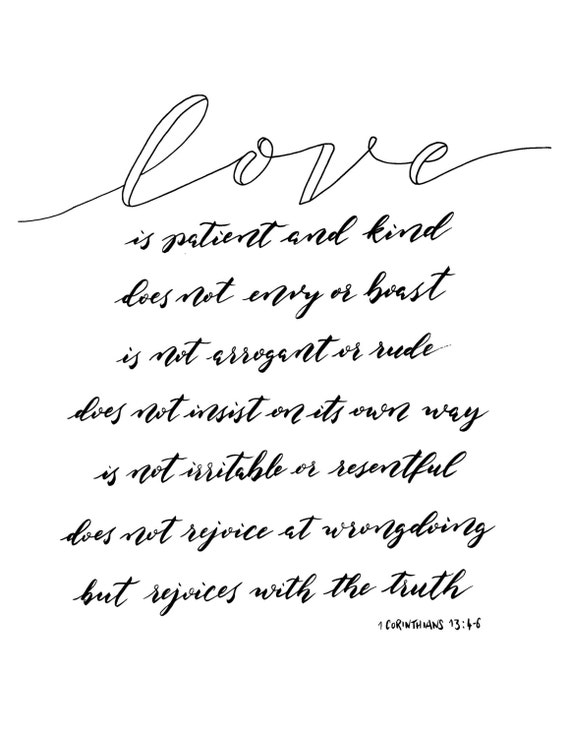 love
is patient and kind
does not envy or boast
is not arrogant or rude
does not insist on its own way
is not irritable or resentful
does not rejoice at wrongdoing
but rejoices with the truth
1 CORINTHIANS 13:4-6